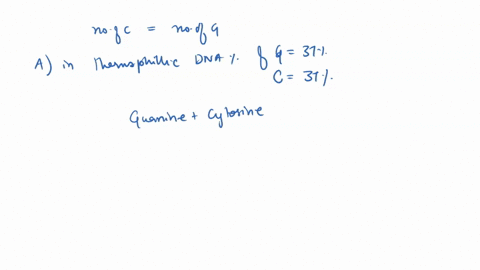 no. of C = no. of G
A) in thermophillic DNA % of G = 37 %.
C = 37 %.
Guanine + Cytosine